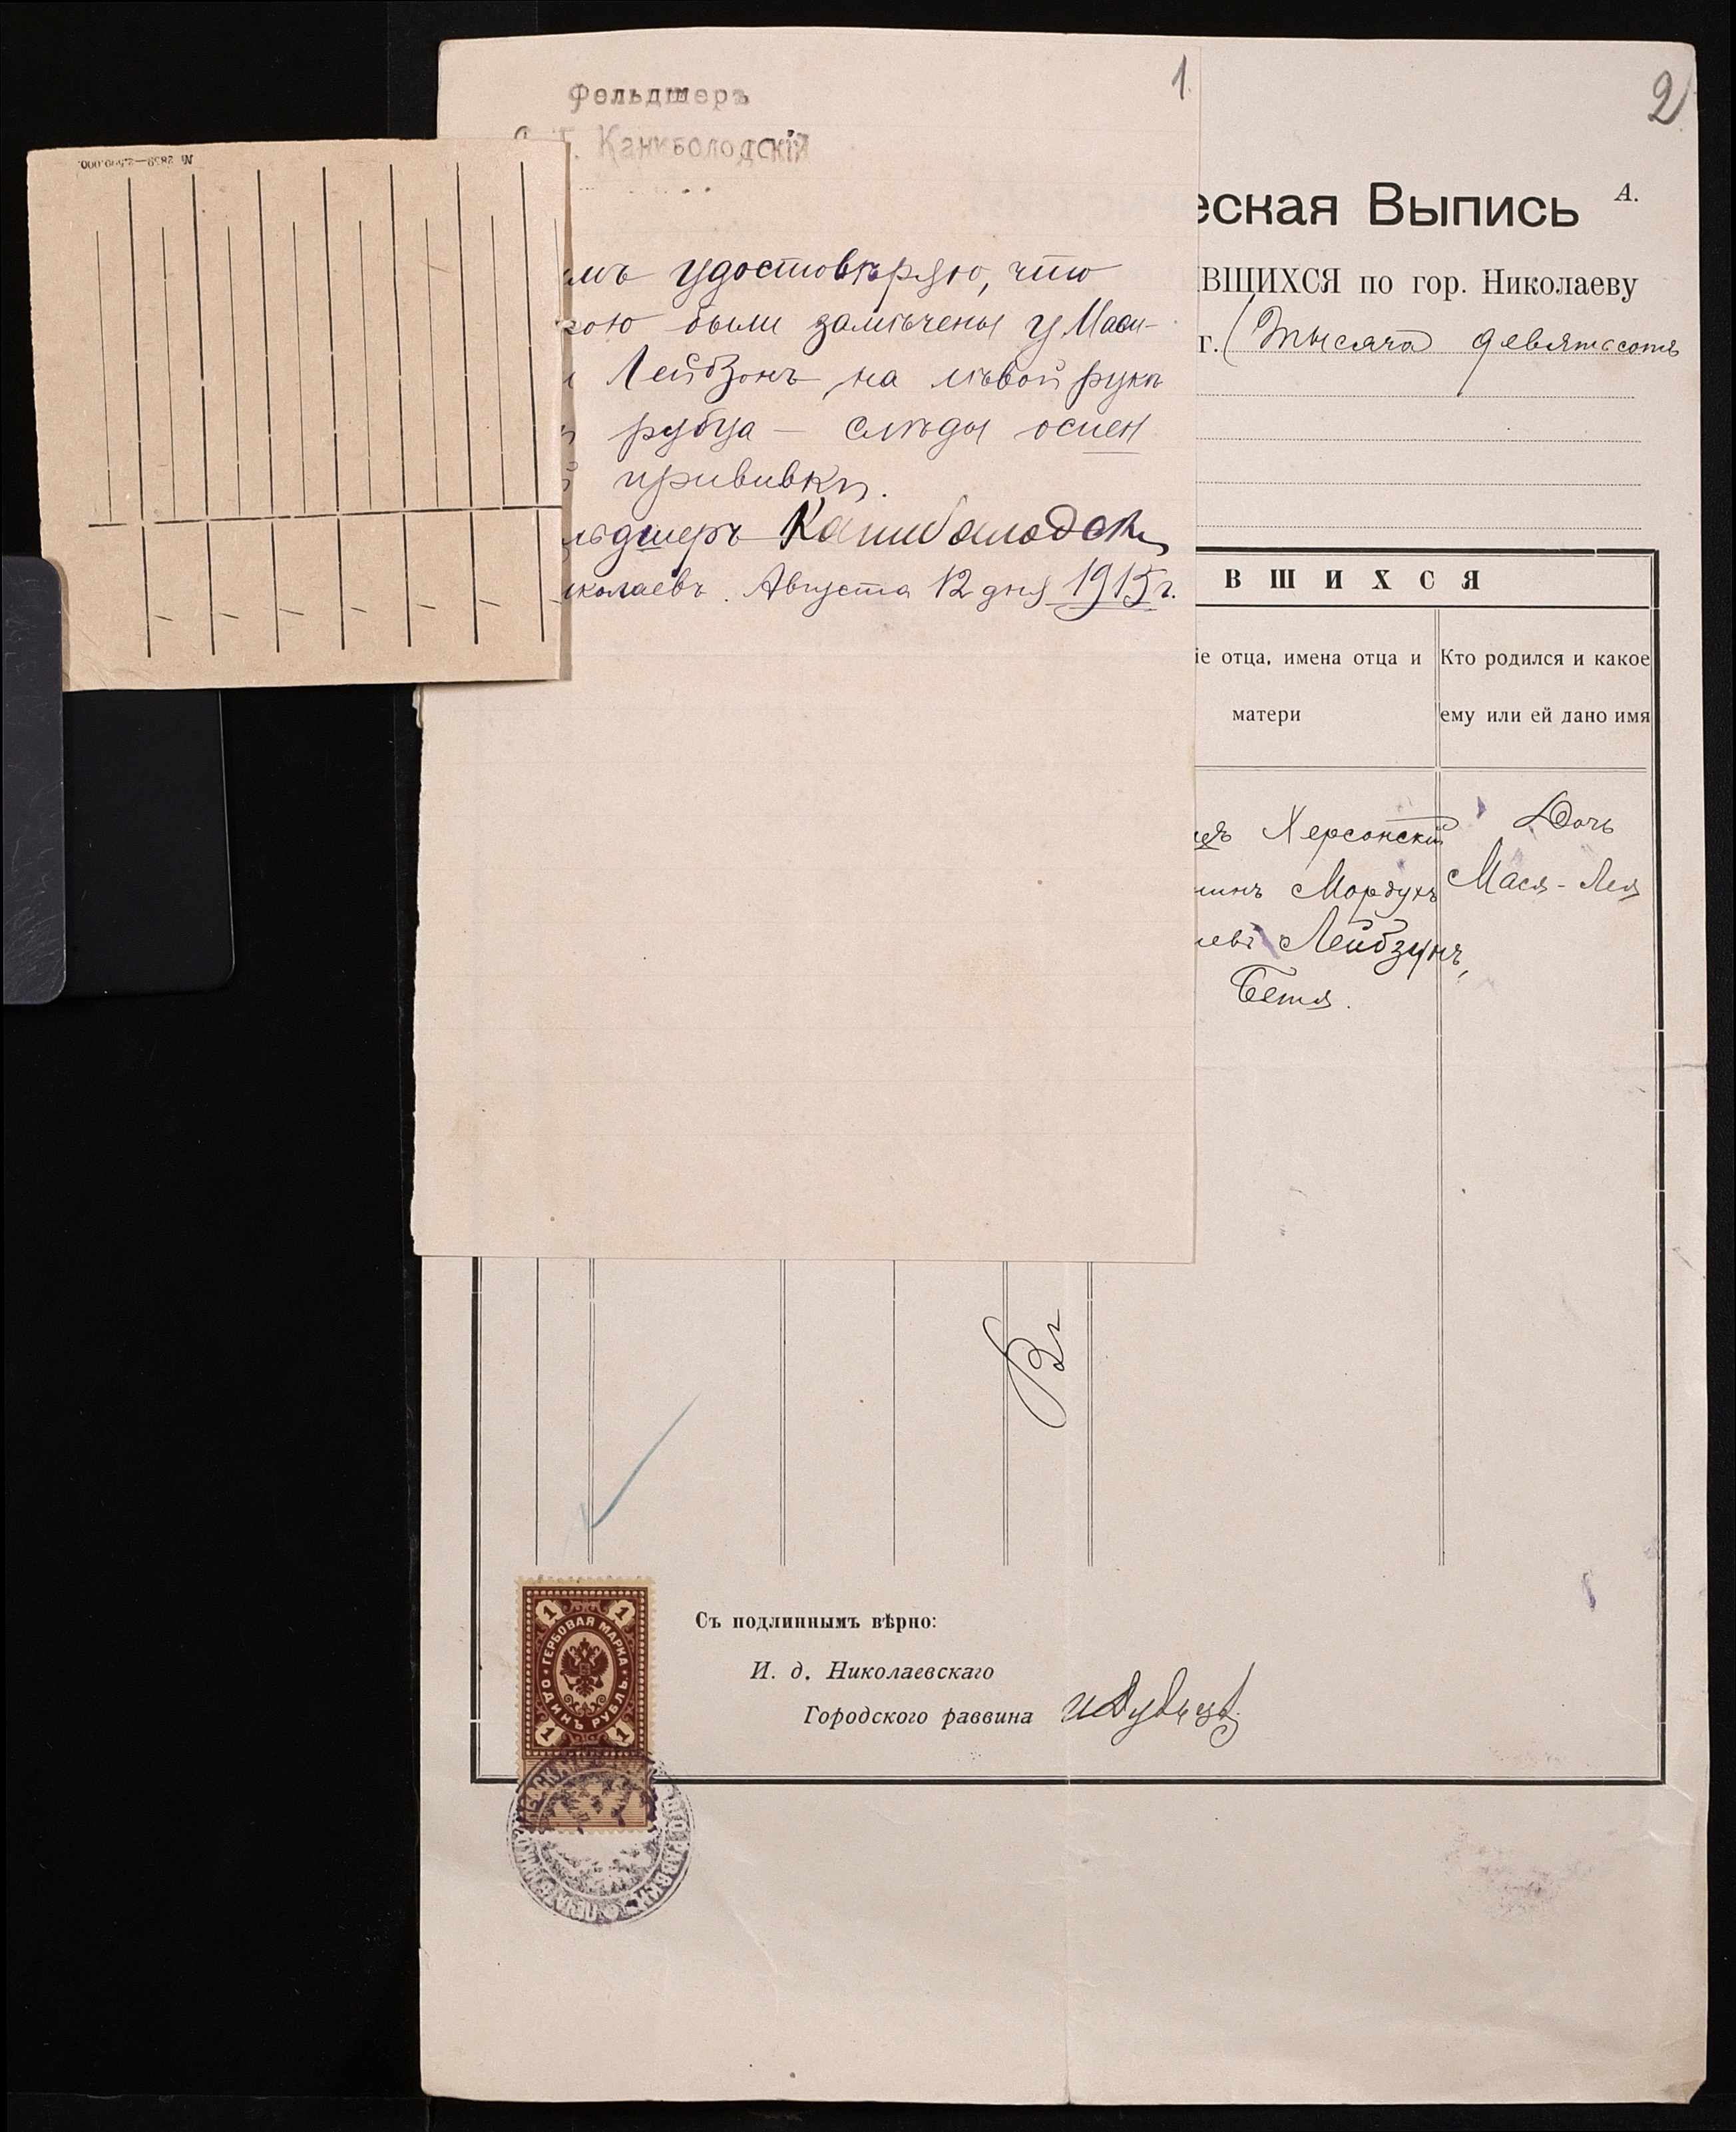 № 2859—2.500.000.
1.
Фельдшеръ
Г. Каниболодскій
удостовѣряю, что
были замѣчены у Маси-
Лейбзонъ на лѣвой рукѣ
рубца — слѣды оспен
прививки.
Каниболодскі
Августа 12 дня 1915 г.
2
еская Выпись А.
ВШИХСЯ по гор. Николаеву
г. (Тысяча девятьсотъ
ВШИХСЯ
іе отца, имена отца и
матери
Кто родился и какое
ему или ей дано имя
Херсонскій
Мордухъ
Лейбзунъ,
Бетя.
Дочь
Мася-Лея
ГЕРБОВАЯ МАРКА
ОДИНЪ РУБЛЬ
1 1 1 1
Съ подлиннымъ вѣрно:
И. д. Николаевскаго
Городского раввина